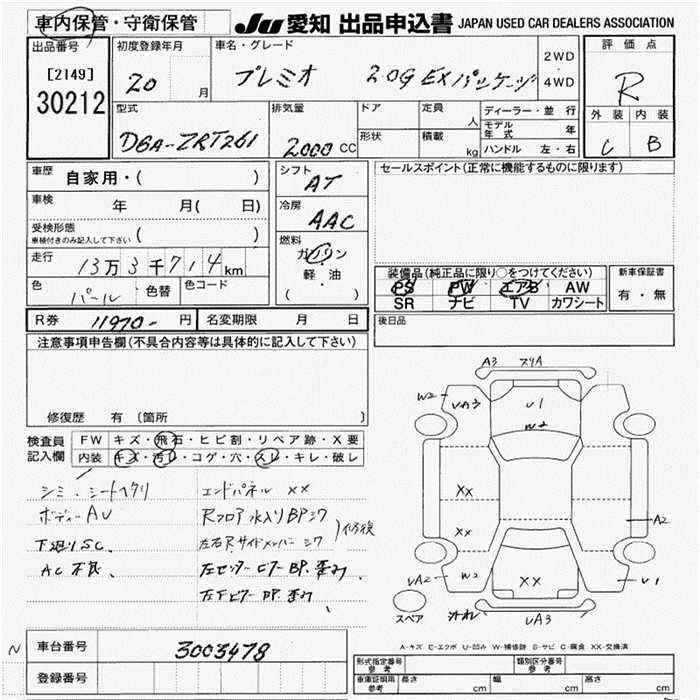 車内保管・守衛保管
JU 愛知 出品申込書 JAPAN USED CAR DEALERS ASSOCIATION
出品番号 初度登録年月 車名・グレード 2WD・4WD 評価点
[2149] 30212 20 月 プレミオ 2.0G EXパッケージ R
型式 排気量 ドア 定員 人 ディーラー・並行 外装 内装
DBA-ZRT261 2000 CC 形状 積載 kg モデル年式 年 C B
ハンドル 左・右
車歴 自家用・( ) シフト AT セールスポイント(正常に機能するものに限ります)
車検 年 月( 日) 冷房 AAC
受検形態 車検付きのみ記入して下さい ( )
走行 13万3千714km 燃料 ガソリン 軽・油 ( )
装備品(純正品に限り○をつけてください) 新車保証書
PS PW エアB AW 有・無
SR ナビ TV カワシート
色 パール 色替 色コード
R券 11970- 円 名変期限 月 日 後日品
注意事項申告欄(不具合内容等は具体的に記入して下さい)
修復歴 有 〔箇所 〕
検査員記入欄 FW キズ・飛石・ヒビ割・リペア跡・X要
内装 キズ・汚レ・コゲ・穴・スレ・キレ・破レ
シミ・シートヘタリ エンドパネル XX
ボディーAU Rフロア 水入りBPシワ
下廻りSC、 左右Rサイドメンバー シワ 修復
AC不良、
A3 スリA
W2 UA3 U1
W2
XX
XX A2
UA2 W2 XX U1
スペア UA3
A-キズ E-エクボ U-凹み W-補修跡 S-サビ C-腐食 XX-交換済
N 車台番号 3003478
登録番号
形式指定番号 参考 類別区分番号 参考
車庫証明用 参考 長さ cm 幅 cm 高さ cm